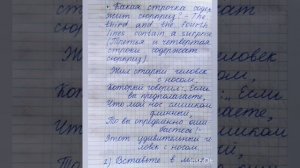 • Какая строчка содер-
жит сюрприз? – The
third and the fourth
lines contain a surprise
(Третья и четвёртая
строки содержат
сюрприз).
Жил старый человек
с носом,
Который говорил: „Если
вы предполагаете,
Что мой нос слишком
длинный,
То вы определенно оши-
баетесь!"
Этот удивительный че-
ловек с носом.
2) Вставьте в